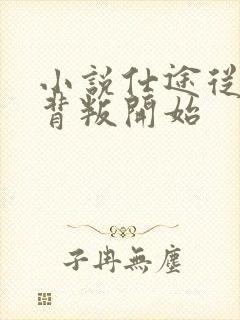 小說仕途從
背叛開始
子冉無塵